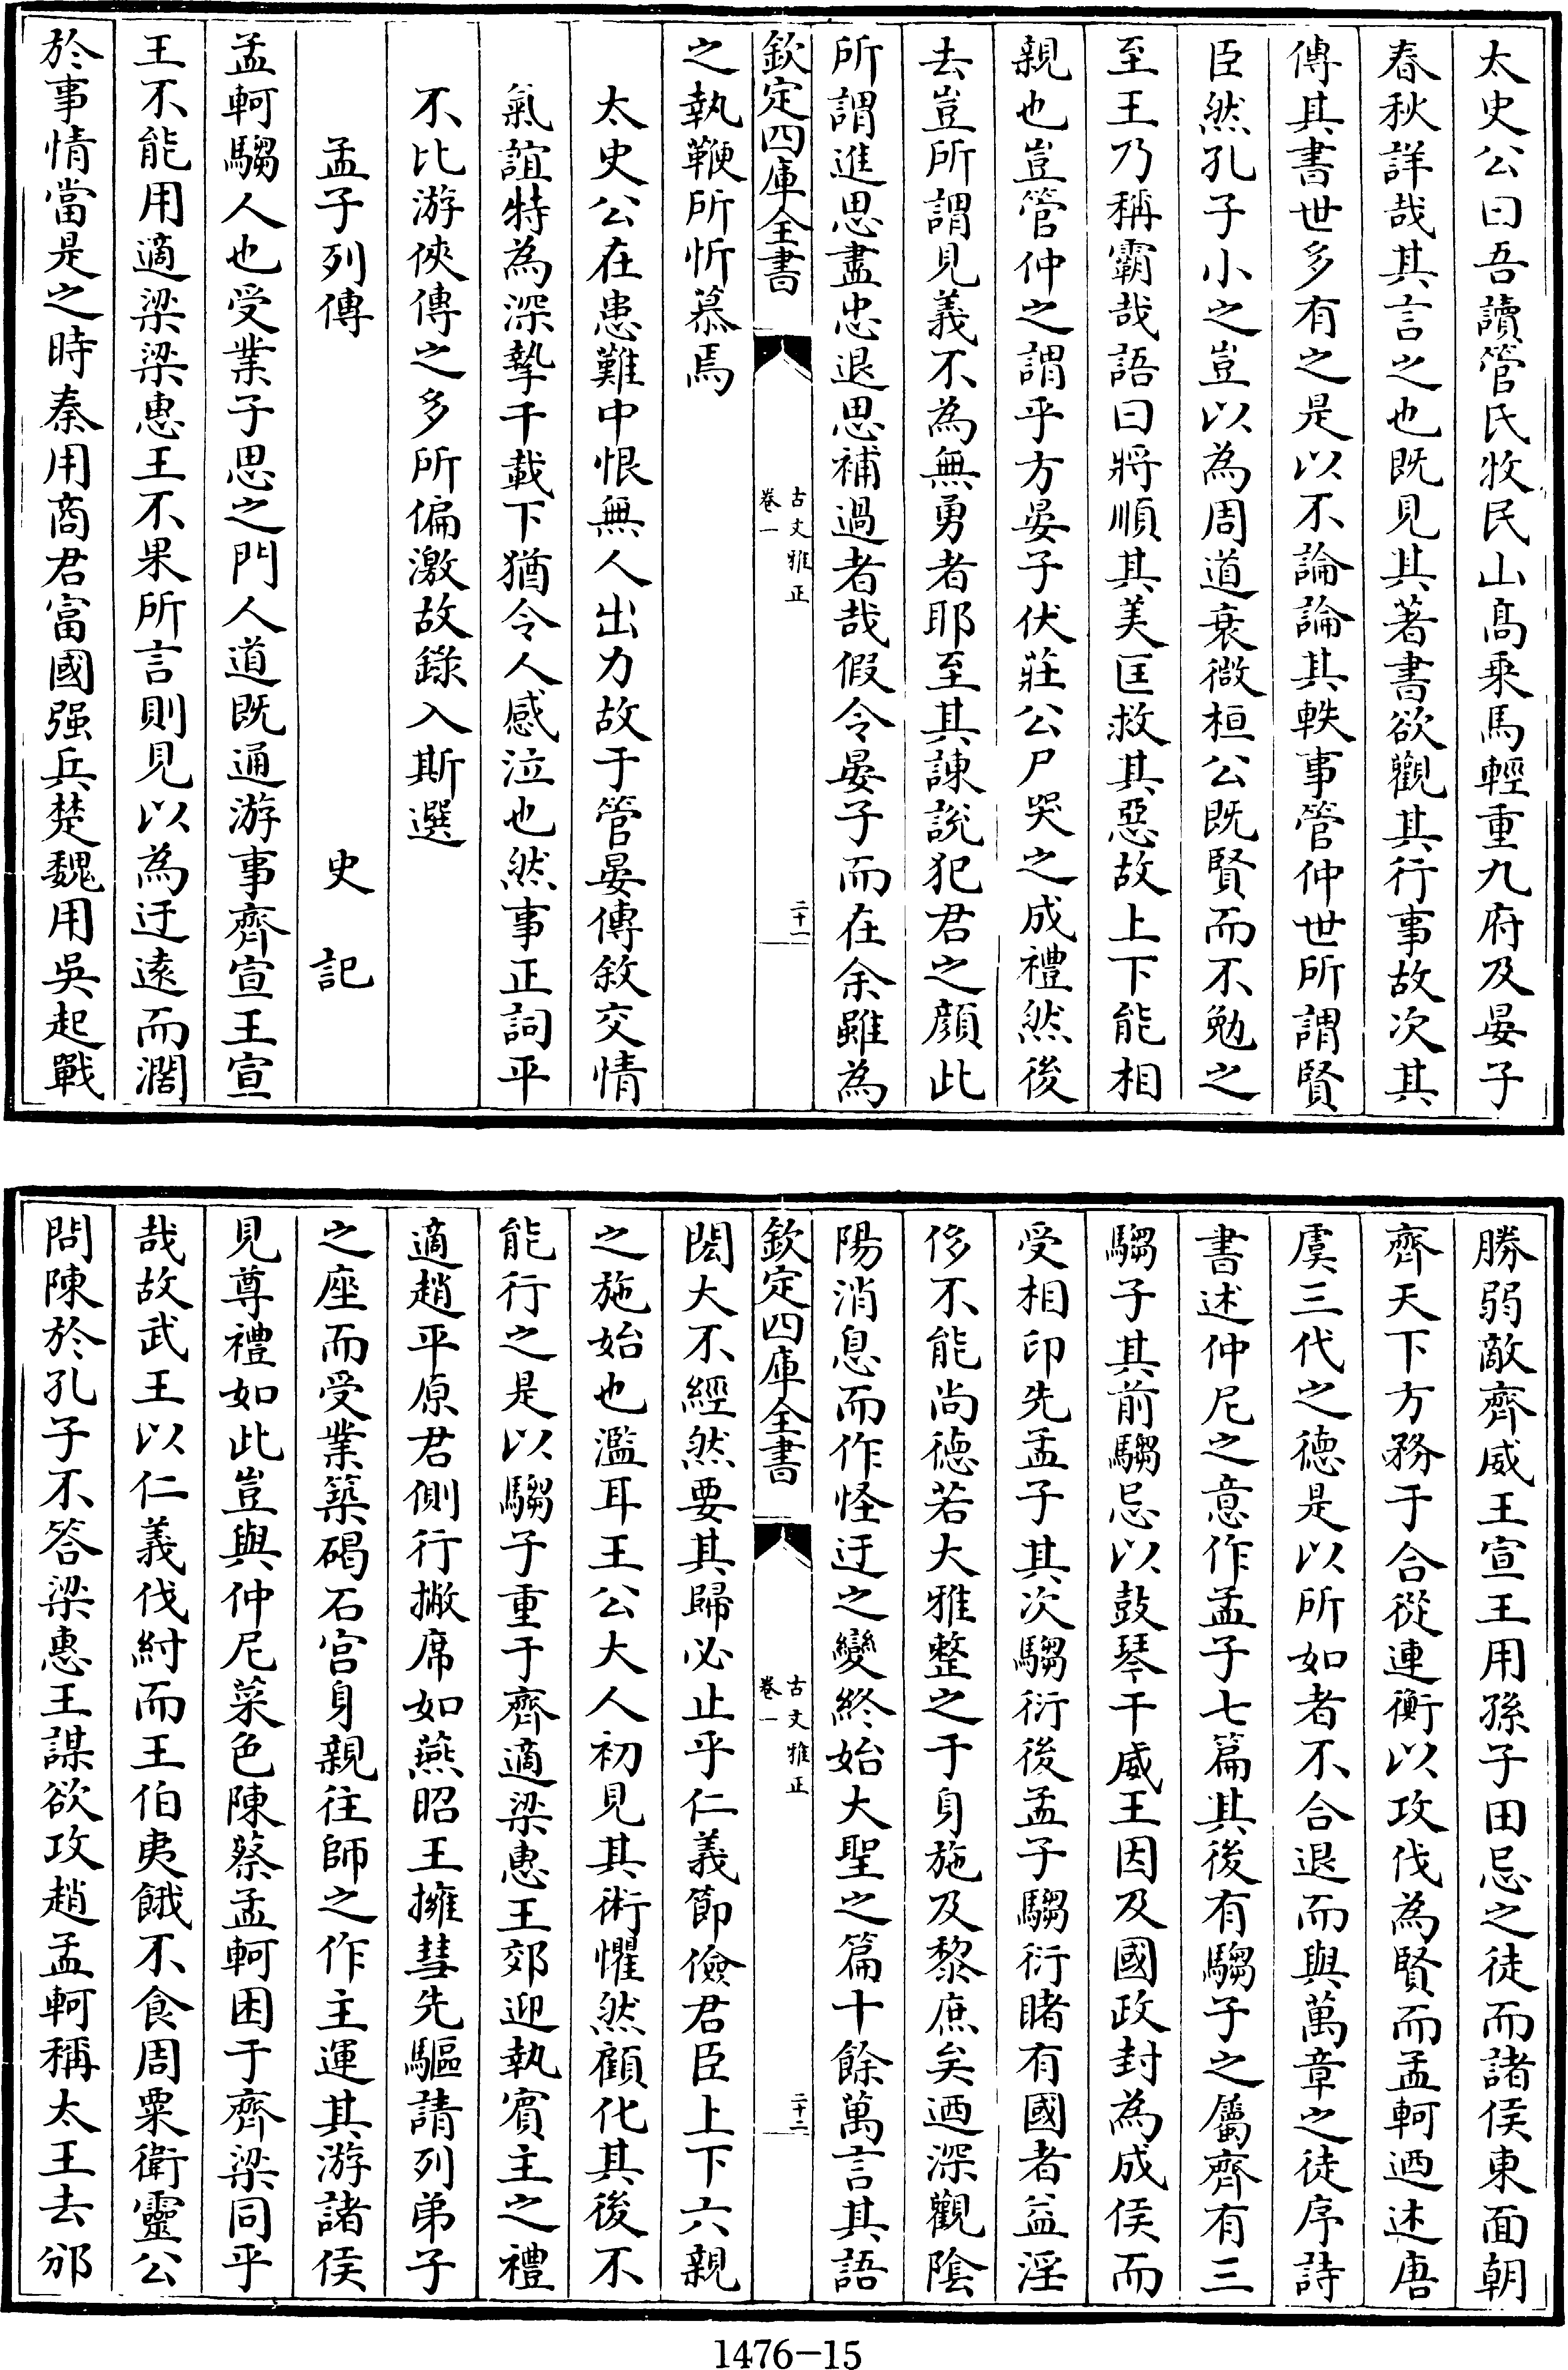 太史公曰吾讀管氏牧民山髙乗馬輕重九府及晏子
春秋詳哉其言之也既見其著書欲觀其行事故次其
傳其書世多有之是以不論論其軼事管仲世所謂賢
臣然孔子小之豈以為周道衰微桓公既賢而不勉之
至王乃稱霸哉語曰將順其美匡救其惡故上下能相
親也豈管仲之謂乎方晏子伏莊公尸哭之成禮然後
去豈所謂見義不為無勇者耶至其諫說犯君之顔此
所謂進思盡忠退思補過者哉假令晏子而在余雖為
欽定四庫全書
古文雅正
卷一
二十一
之執鞭所忻慕焉
太史公在患難中恨無人出力故于管晏傳敘交情
氣誼特為深摯千載下猶令人感泣也然事正詞平
不比游俠傳之多所偏激故錄入斯選
孟子列傳 史記
孟軻騶人也受業子思之門人道既通游事齊宣王宣
王不能用適梁梁惠王不果所言則見以為迂逺而濶
於事情當是之時秦用商君富國强兵楚魏用吳起戰
勝弱敵齊威王宣王用孫子田忌之徒而諸侯東面朝
齊天下方務于合從連衡以攻伐為賢而孟軻迺述唐
虞三代之德是以所如者不合退而與萬章之徒序詩
書述仲尼之意作孟子七篇其後有騶子之屬齊有三
騶子其前騶忌以鼓琴干威王因及國政封為成侯而
受相印先孟子其次騶衍後孟子騶衍睹有國者益淫
侈不能尚德若大雅整之于身施及黎庶矣迺深觀陰
陽消息而作怪迂之變終始大聖之篇十餘萬言其語
欽定四庫全書
古文雅正
卷一
二十二
閎大不經然要其歸必止乎仁義節儉君臣上下六親
之施始也濫耳王公大人初見其術懼然顧化其後不
能行之是以騶子重于齊適梁惠王郊迎執賓主之禮
適趙平原君側行撇席如燕昭王擁彗先驅請列弟子
之座而受業築碣石宫身親往師之作主運其游諸侯
見尊禮如此豈與仲尼菜色陳蔡孟軻困于齊梁同乎
哉故武王以仁義伐紂而王伯夷餓不食周粟衛靈公
問陳於孔子不答梁惠王謀欲攻趙孟軻稱太王去邠
1476-15